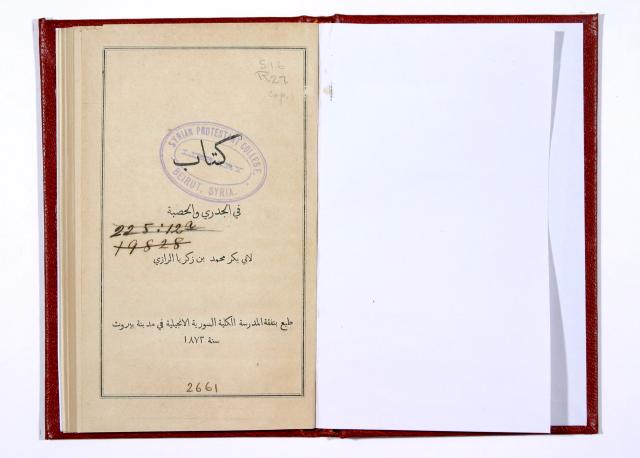 516
R27
cop.1
SYRIAN PROTESTANT COLLEGE,
BEIRUT, SYRIA.
كتاب
في الجدري والحصبة
225:12a
19828
لابي بكر محمد بن زكريا الرازي
طبع بنفقة المدرسة الكلية السورية الانجيلية في مدينة بيروت
سنة ١٨٧٢
2661